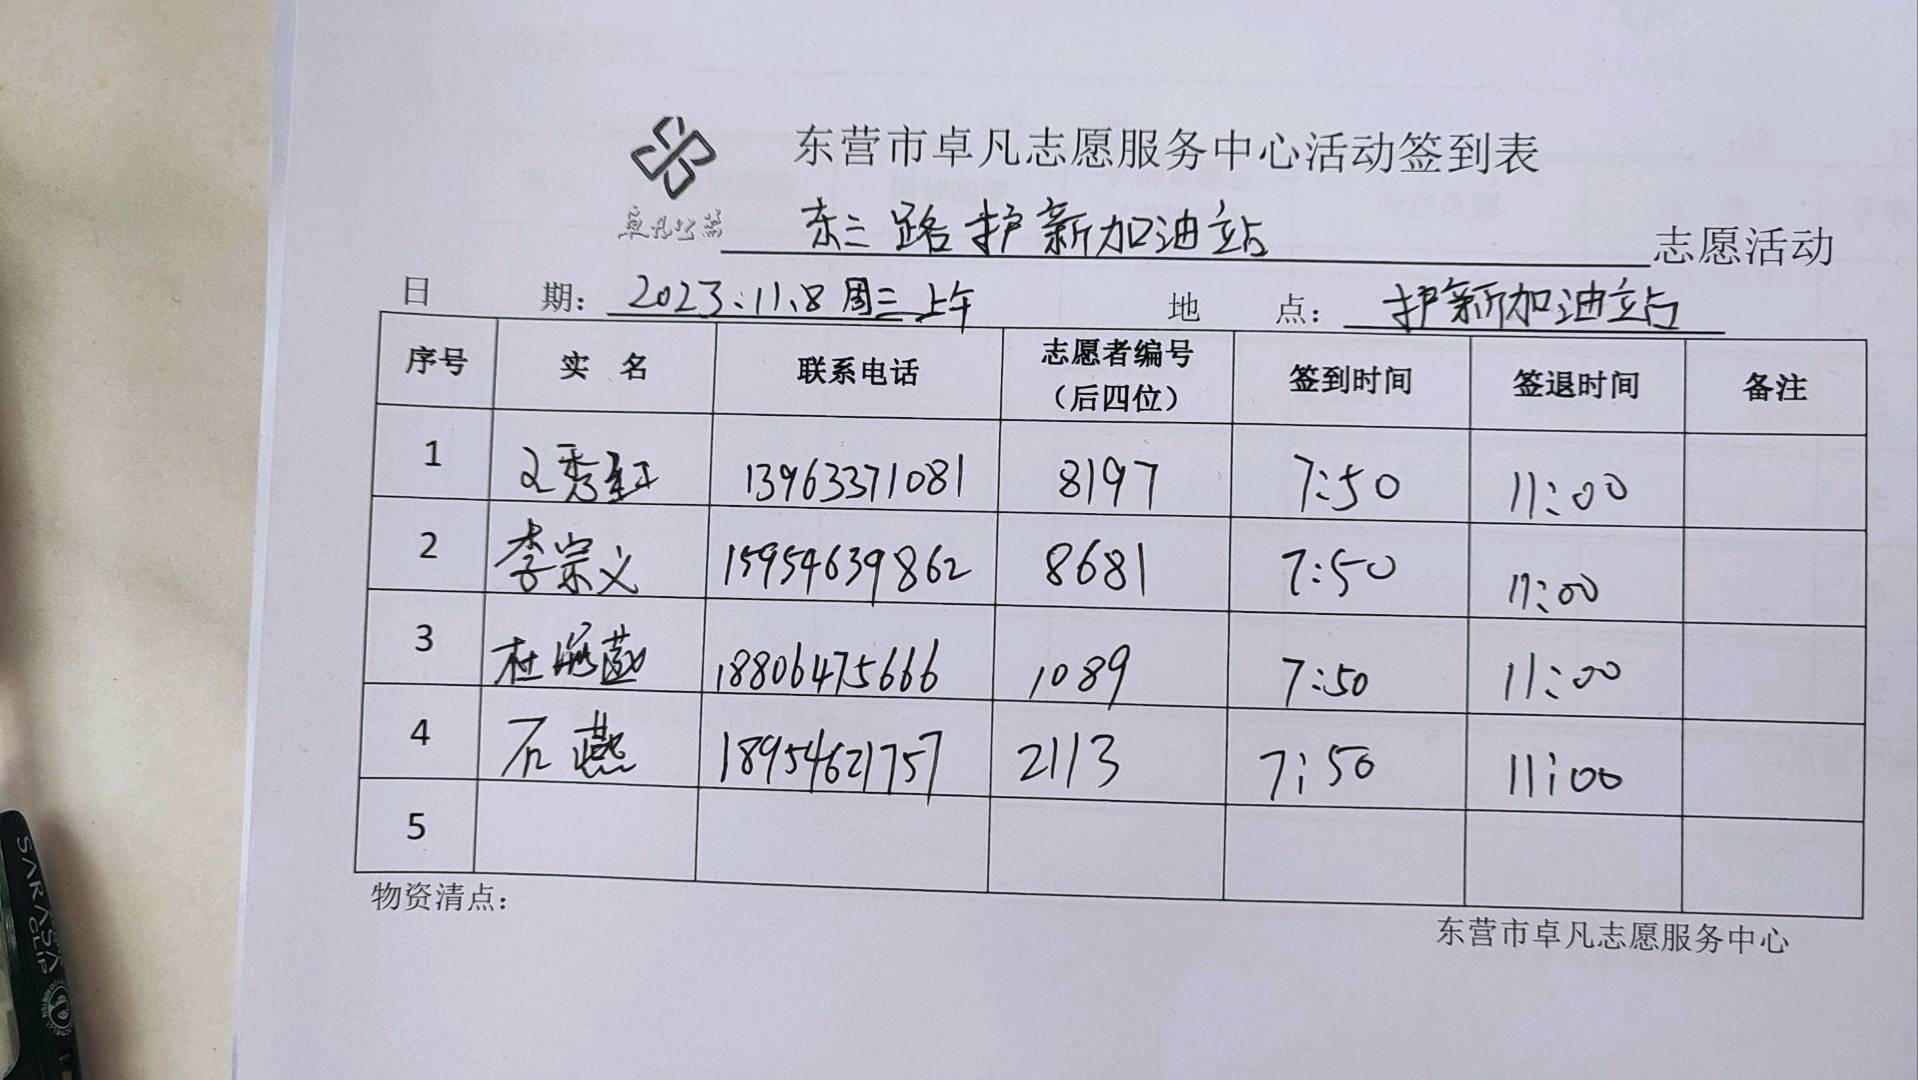 东营市卓凡志愿服务中心活动签到表
卓凡公益
东三路护新加油站 志愿活动
日 期: 2023.11.8 周三上午 地 点: 护新加油站
序号 实 名 联系电话 志愿者编号(后四位) 签到时间 签退时间 备注
1 秀红 13963371081 8197 7:50 11:00
2 李宗义 15954639862 8681 7:50 11:00
3 杜 18806475666 1089 7:50 11:00
4 石燕 18954621757 2113 7:50 11:00
5
物资清点:
东营市卓凡志愿服务中心
SARASA
CLIP